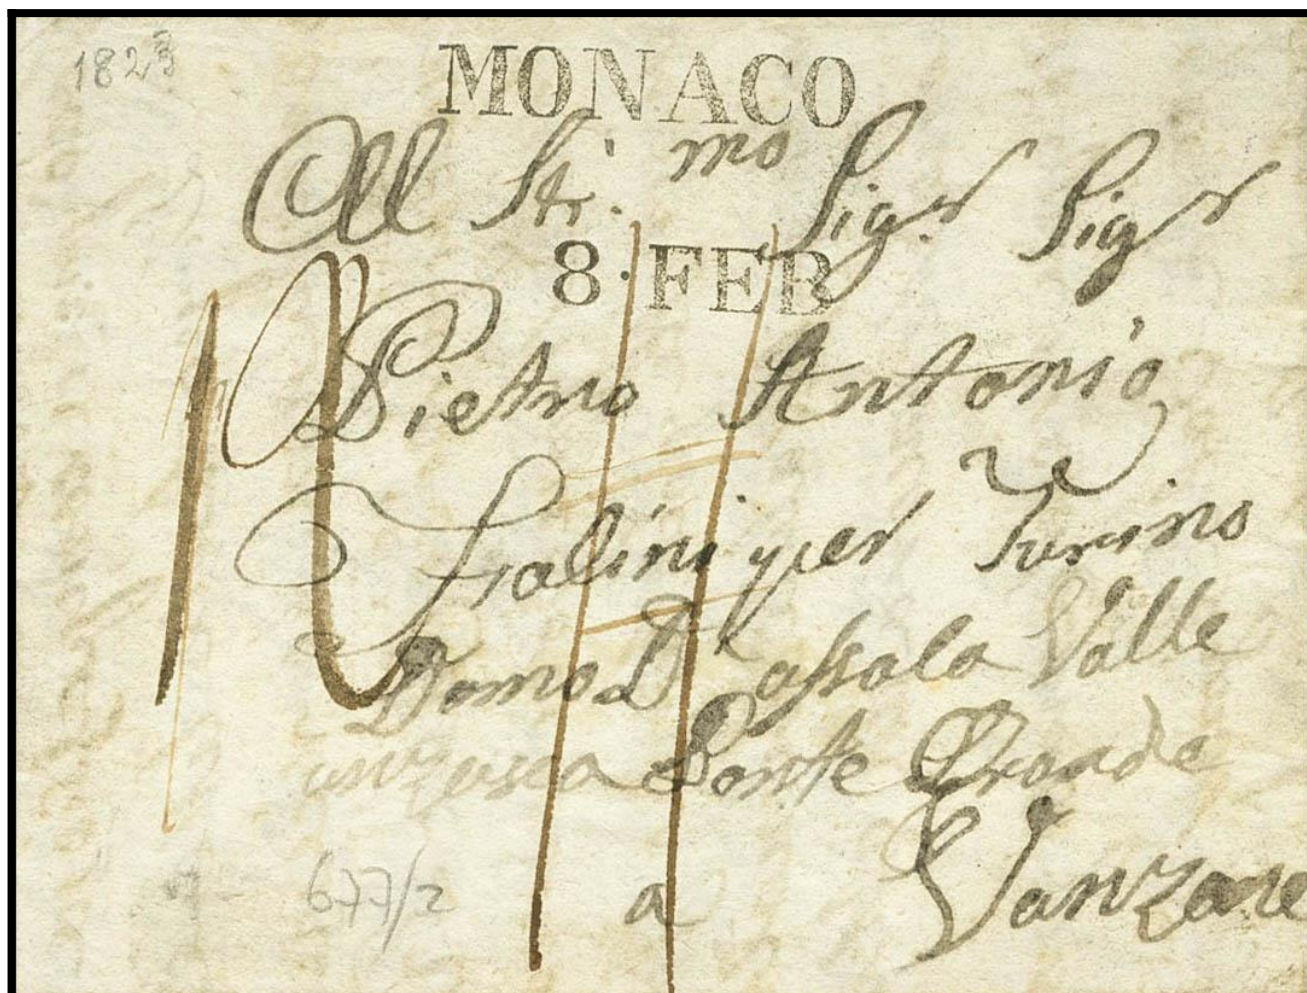 1823
MONACO
All Sti.mo Sig.r Sigr
8 · FEB
Pietro Antonio
per Turino
Domo D assola Valle
anzasca Ponte Grande
677/2
a Vanzone